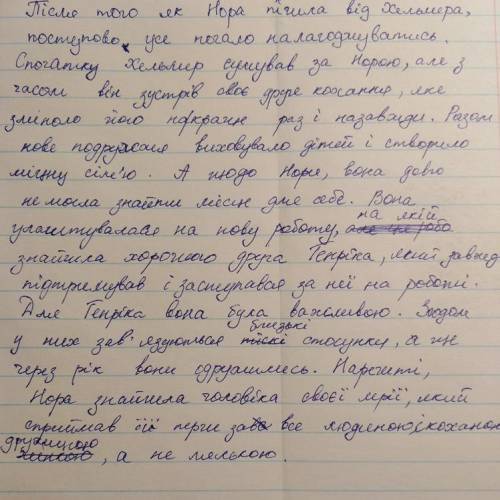 Після того як Нора пішла від Хельмера,
поступово усе почало налагоджуватись.
Спочатку Хельмер сумував за Норою, але з
часом він зустрів своє друге кохання, яке
змінило його на краще раз і назавжди. Разом
нове подружжя виховувало дітей і створило
міцну сім'ю. А щодо Нори, вона довго
не могла знайти місця для себе. Вона
улаштувалася на нову роботу, на якій
знайшла хорошого друга Генріка, який завжди
підтримував і заступався за неї на роботі.
Для Генріка вона була важливою. Згодом
у них зав'язуються близькі стосунки, а ще
через рік вони одружились. Нарешті,
Нора знайшла чоловіка своєї мрії, який
сприймав її перш за все людиною, коханою
дружиною, а не лялькою.